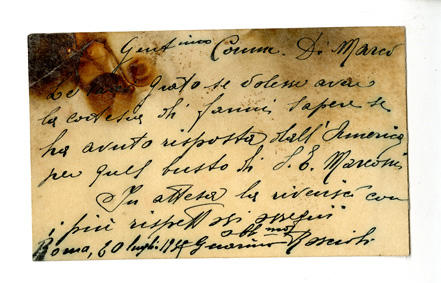 Gent.imo Comm. Di Marco
Le sarò grato se volesse avere
la cortesia di farmi sapere se
ha avuto risposta dall'America
per quel busto di S. E. Marconi
In attesa la riverisco con
i più rispettosi ossequi
obb.mo
Roma, 20 luglio Guarino Roscioli